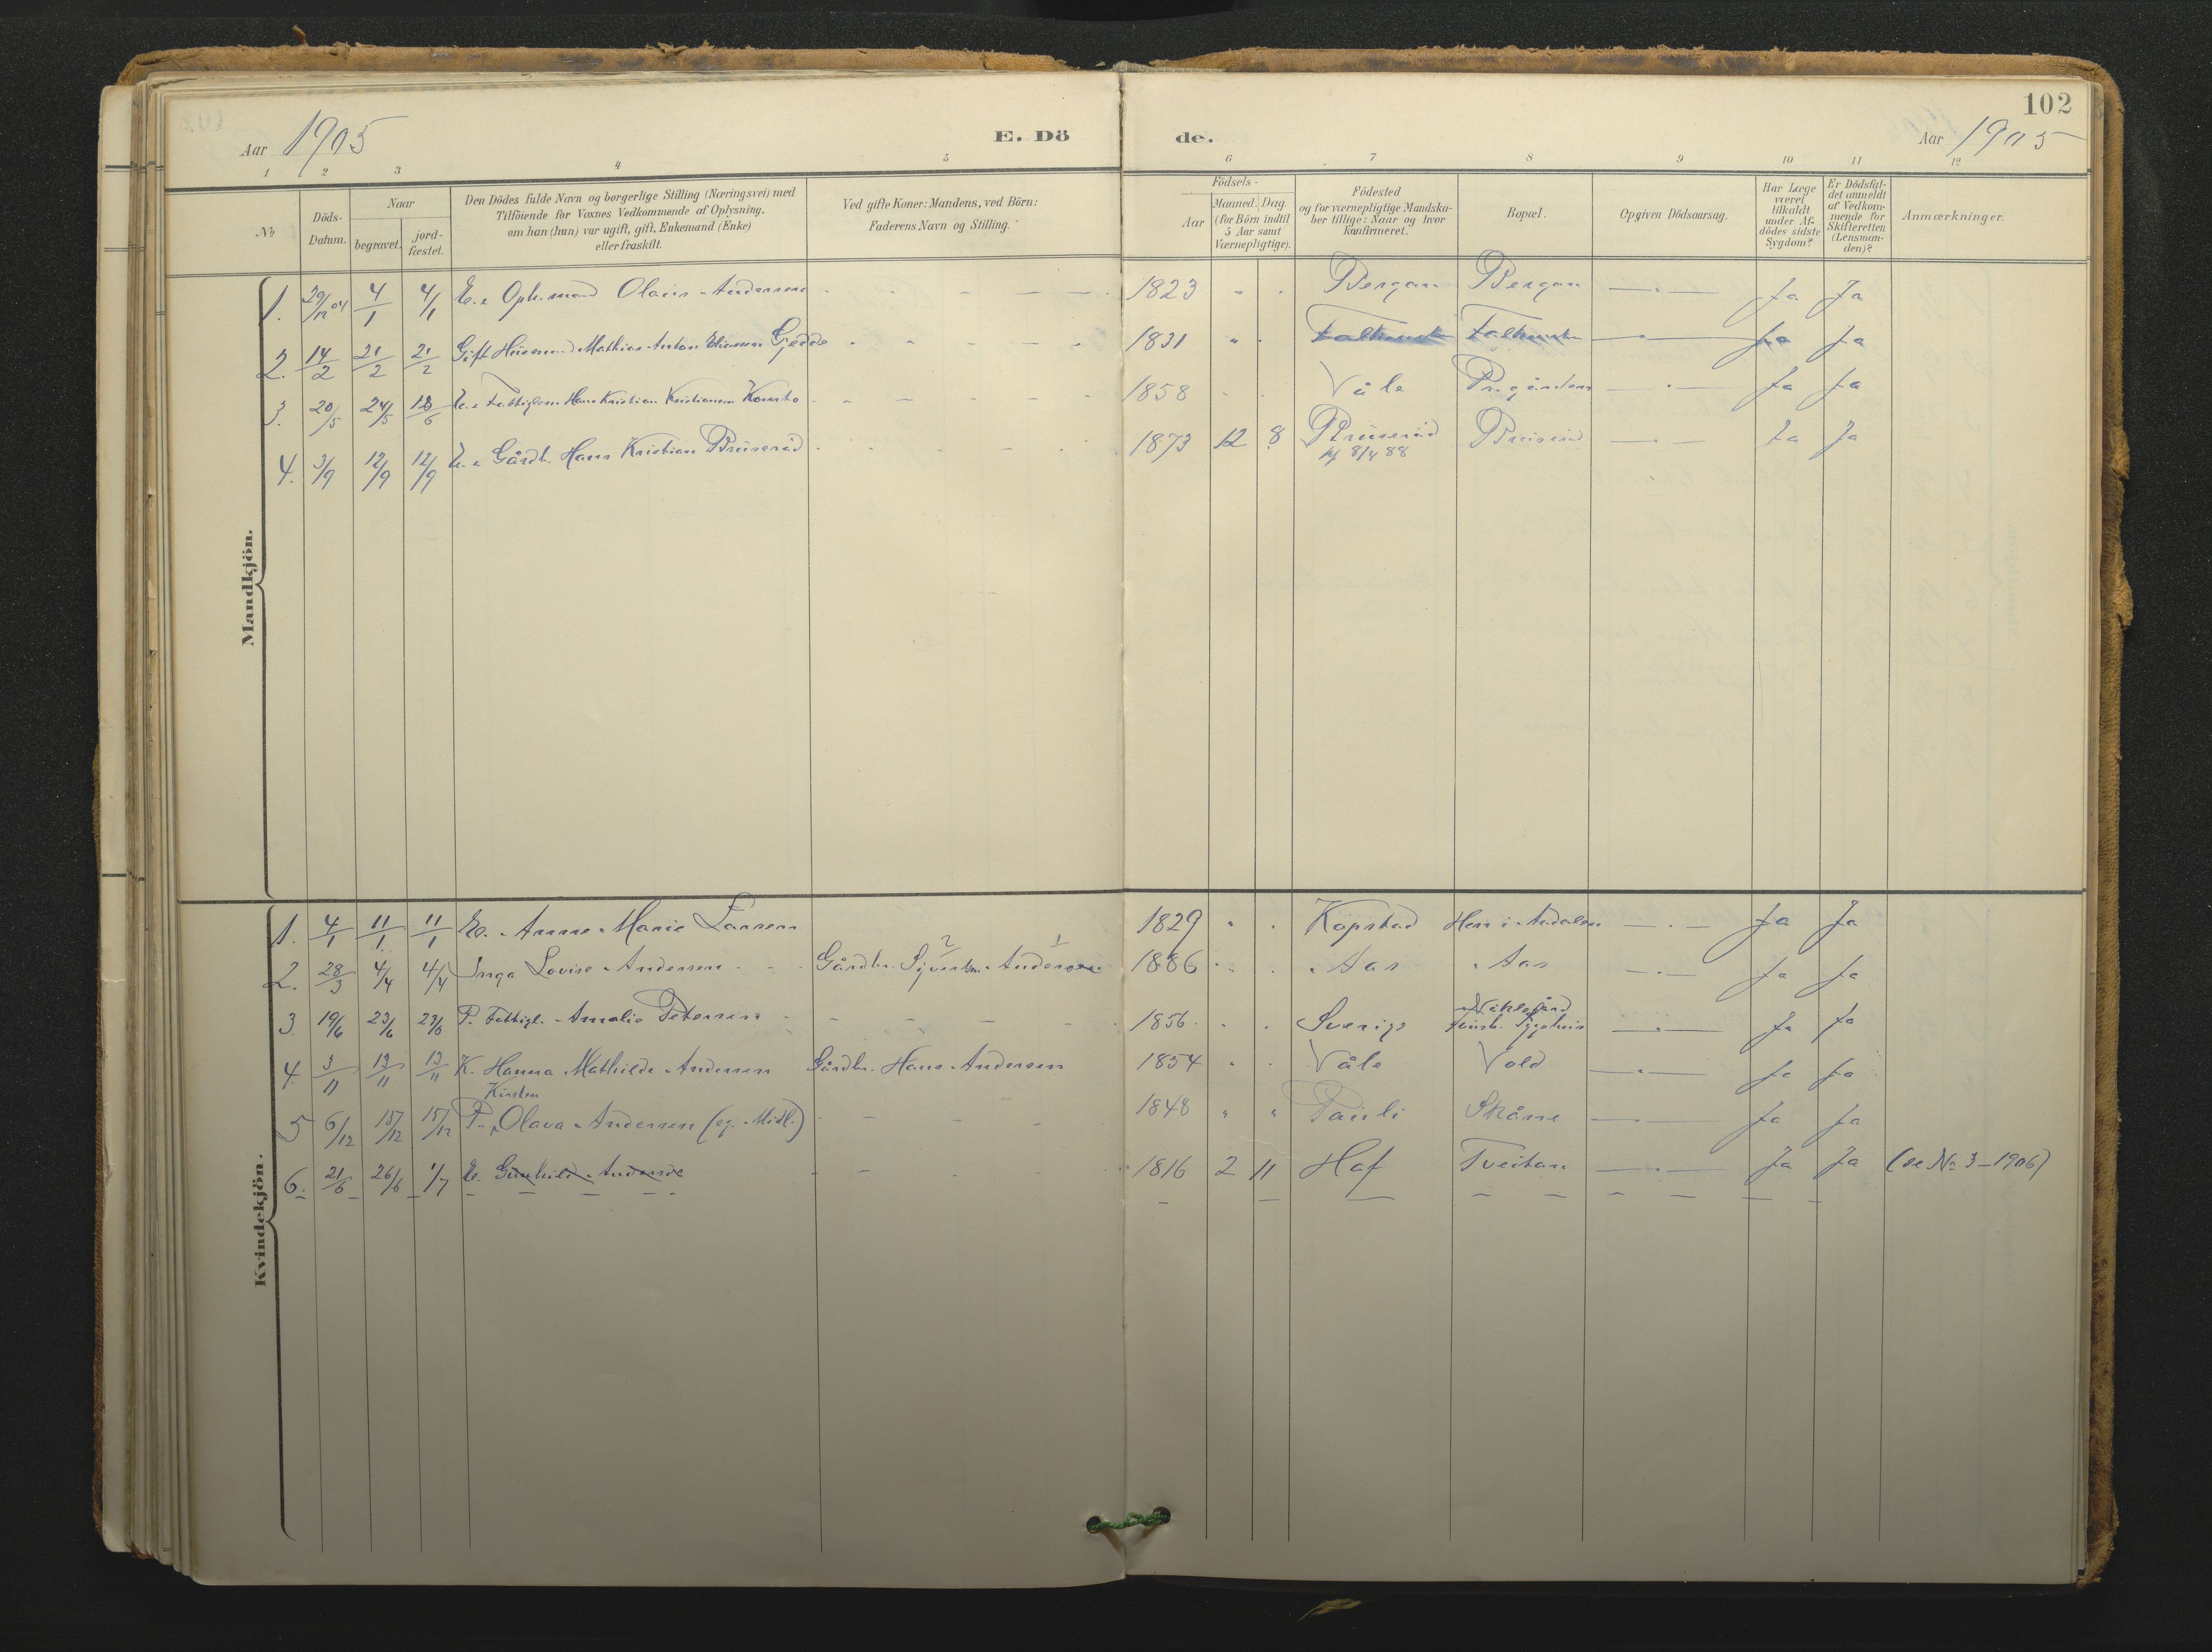 102
Aar 1905 E. Dö de. Aar 1905
1 2 3 4 5 6 7 8 9 10 11 12
No. Döds-Datum. Naar begravet. jord-fæstet. Den Dödes fulde Navn og borgerlige Stilling (Næringsvei) med Tilföiende for Voxnes Vedkommende af Oplysning, om han (hun) var ugift, gift, Enkemand (Enke) eller fraskilt. Ved gifte Koner: Mandens, ved Börn: Faderens Navn og Stilling. Födsels- Aar Maaned. Dag. (for Börn indtil 5 Aar samt Værnepligtige). Födested og for værnepligtige Mandskaber tillige: Naar og hvor Konfirmeret. Bopæl. Opgiven Dödsaarsag. Har Læge været tilkaldt under Afdödes sidste Sygdom? Er Dödsfaldet anmeldt af Vedkommende for Skifteretten (Lensmanden)? Anmærkninger.
Mandkjön.
1. 29/12 04 4/1 4/1 E. Oph.mand Olaus Andersen 1823 Bergan Bergan Ja Ja
2. 14/2 21/2 21/2 Gift Husmand Mathias Anton Eliasen Gjedde 1831 Ja Ja
3. 20/5 24/5 18/6 Hans Kristian Kristiansen 1858 Våle Ja Ja
4. 3/9 12/9 12/9 Gårdb. Hans Kristian Bruserød 1873 12 8 Bruserød Bruserød Ja Ja
8/4 88
Kvindekjön.
1. 4/1 11/1 11/1 E. Anne Marie Larsen 1829 Kopstad Ja Ja
2. 28/3 4/4 4/4 Inga Lovise Andersen Gårdbr. Andersen 1886 Aas Aas Ja Ja
3 19/6 23/6 23/6 P. Fattigl. Amalie Petersen 1856 Sverige Sygehus Ja Ja
4 3/11 13/11 13/11 K. Hanna Mathilde Andersen Gårdbr. Hans Andersen 1854 Våle Vold Ja Ja
Kirsten
5 6/12 15/12 15/12 P. Olava Andersen (og. Midl.) 1848 Pauli Skåne Ja Ja
6. 21/6 26/6 1/7 E. Gunhild Andersdr 1816 2 11 Haf Tveitan Ja Ja (se No 3 - 1906)